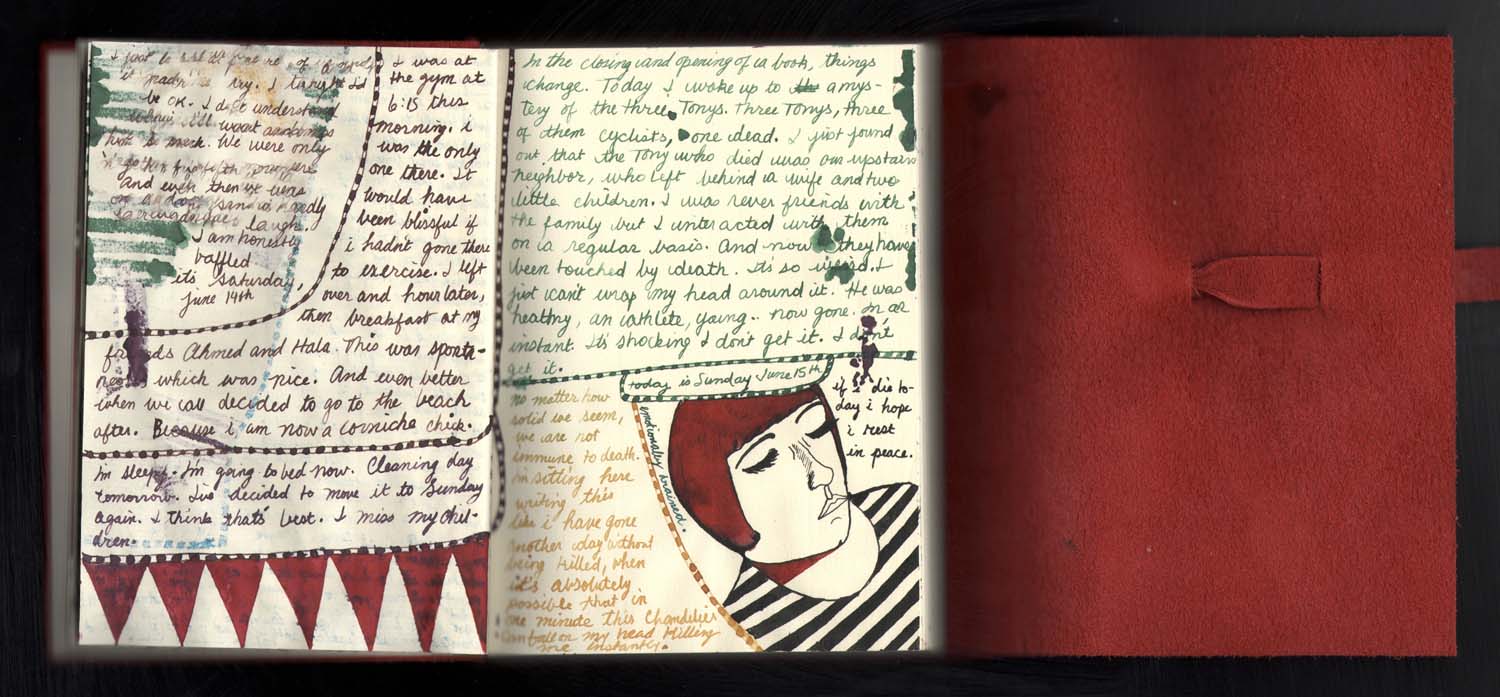 I just
it made me cry. I
be OK. I don't understand
him so much. We were only
and even then we were
laugh.
I am honestly
baffled
its Saturday,
June 14th
I was at
the gym at
6:15 this
morning. i
was the only
one there. It
would have
been blissful if
i hadn't gone there
to exercise. I left
over and hour later,
then breakfast at my
friends Ahmed and Hala. This was sponta-
neous which was nice. And even better
when we all decided to go to the beach
after. Because i am now a corniche chick.
i'm sleepy. I'm going to bed now. Cleaning day
tomorrow. I've decided to move it to Sunday
again. I think that's best. I miss my chil-
dren.
In the closing and opening of a book, things
change. Today I woke up to a mys-
tery of the three Tonys. Three Tonys, three
of them cyclists, one dead. I just found
out that the Tony who died was our upstairs
neighbor, who left behind a wife and two
little children. I was never friends with
the family but I interacted with them
on a regular basis. And now they have
been touched by death. It's so weird. I
just can't wrap my head around it. He was
healthy, an athlete, young.. now gone. In an
instant. It's shocking I don't get it. I don't
get it.
today is Sunday June 15th
no matter how
solid we seem,
we are not
immune to death.
i'm sitting here
writing this
like i have gone
another day without
being killed, when
it's absolutely
possible that in
one minute this Chandelier
can fall on my head killing
me instantly.
emotionally drained.
if I die to-
day i hope
i rest
in peace.